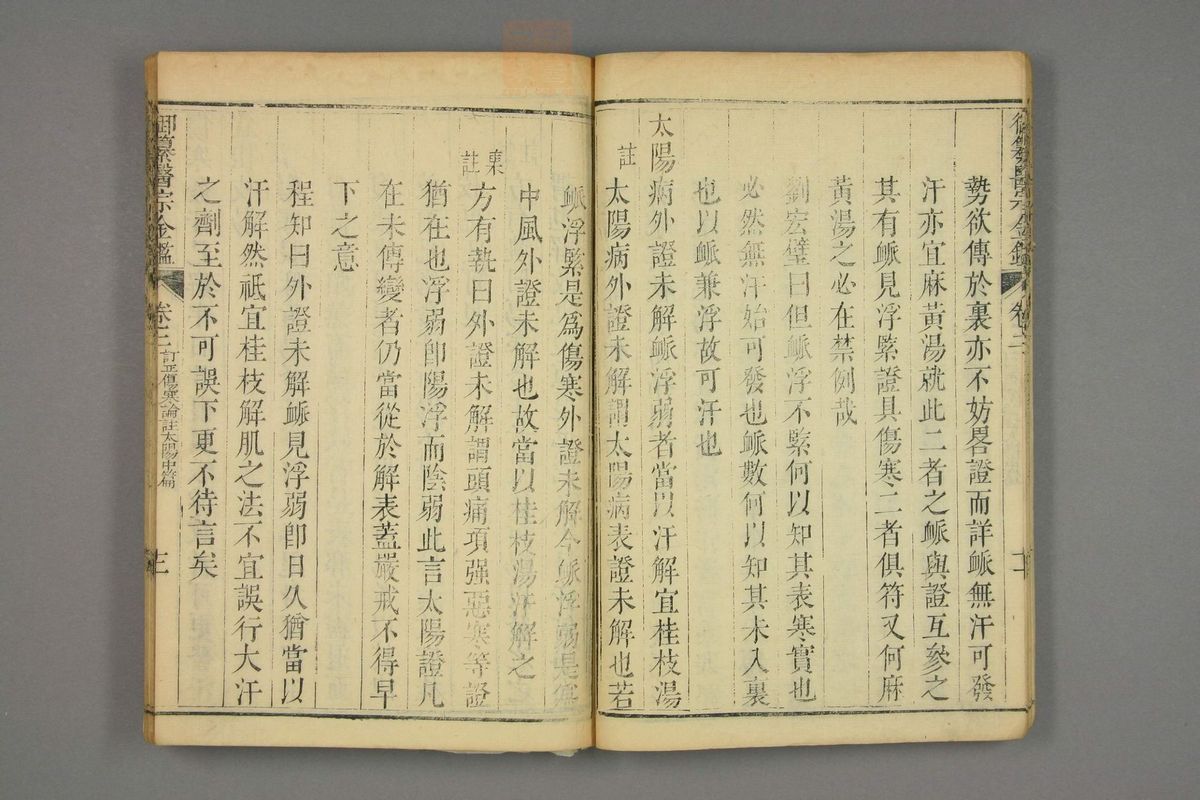 勢欲傳於裏亦不妨畧證而詳脈無汗可發
汗亦宜麻黃湯就此二者之脈與證互參之
其有脈見浮緊證具傷寒二者俱符又何麻
黃湯之必在禁例哉
劉宏璧曰但脈浮不緊何以知其表寒實也
必然無汗始可發也脈數何以知其未入裏
也以脈兼浮故可汗也
太陽病外證未解脈浮弱者當以汗解宜桂枝湯
註
太陽病外證未解謂太陽病表證未解也若
脈浮緊是為傷寒外證未解今脈浮弱是為
中風外證未解也故當以桂枝湯汗解之
集註
方有執曰外證未解謂頭痛項强惡寒等證
猶在也浮弱卽陽浮而陰弱此言太陽證凡
在未傳變者仍當從於解表蓋嚴戒不得早
下之意
程知曰外證未解脈見浮弱卽日久猶當以
汗解然祇宜桂枝解肌之法不宜誤行大汗
之劑至於不可誤下更不待言矣
御纂醫宗金鑑
卷三
訂正傷寒論註太陽中篇